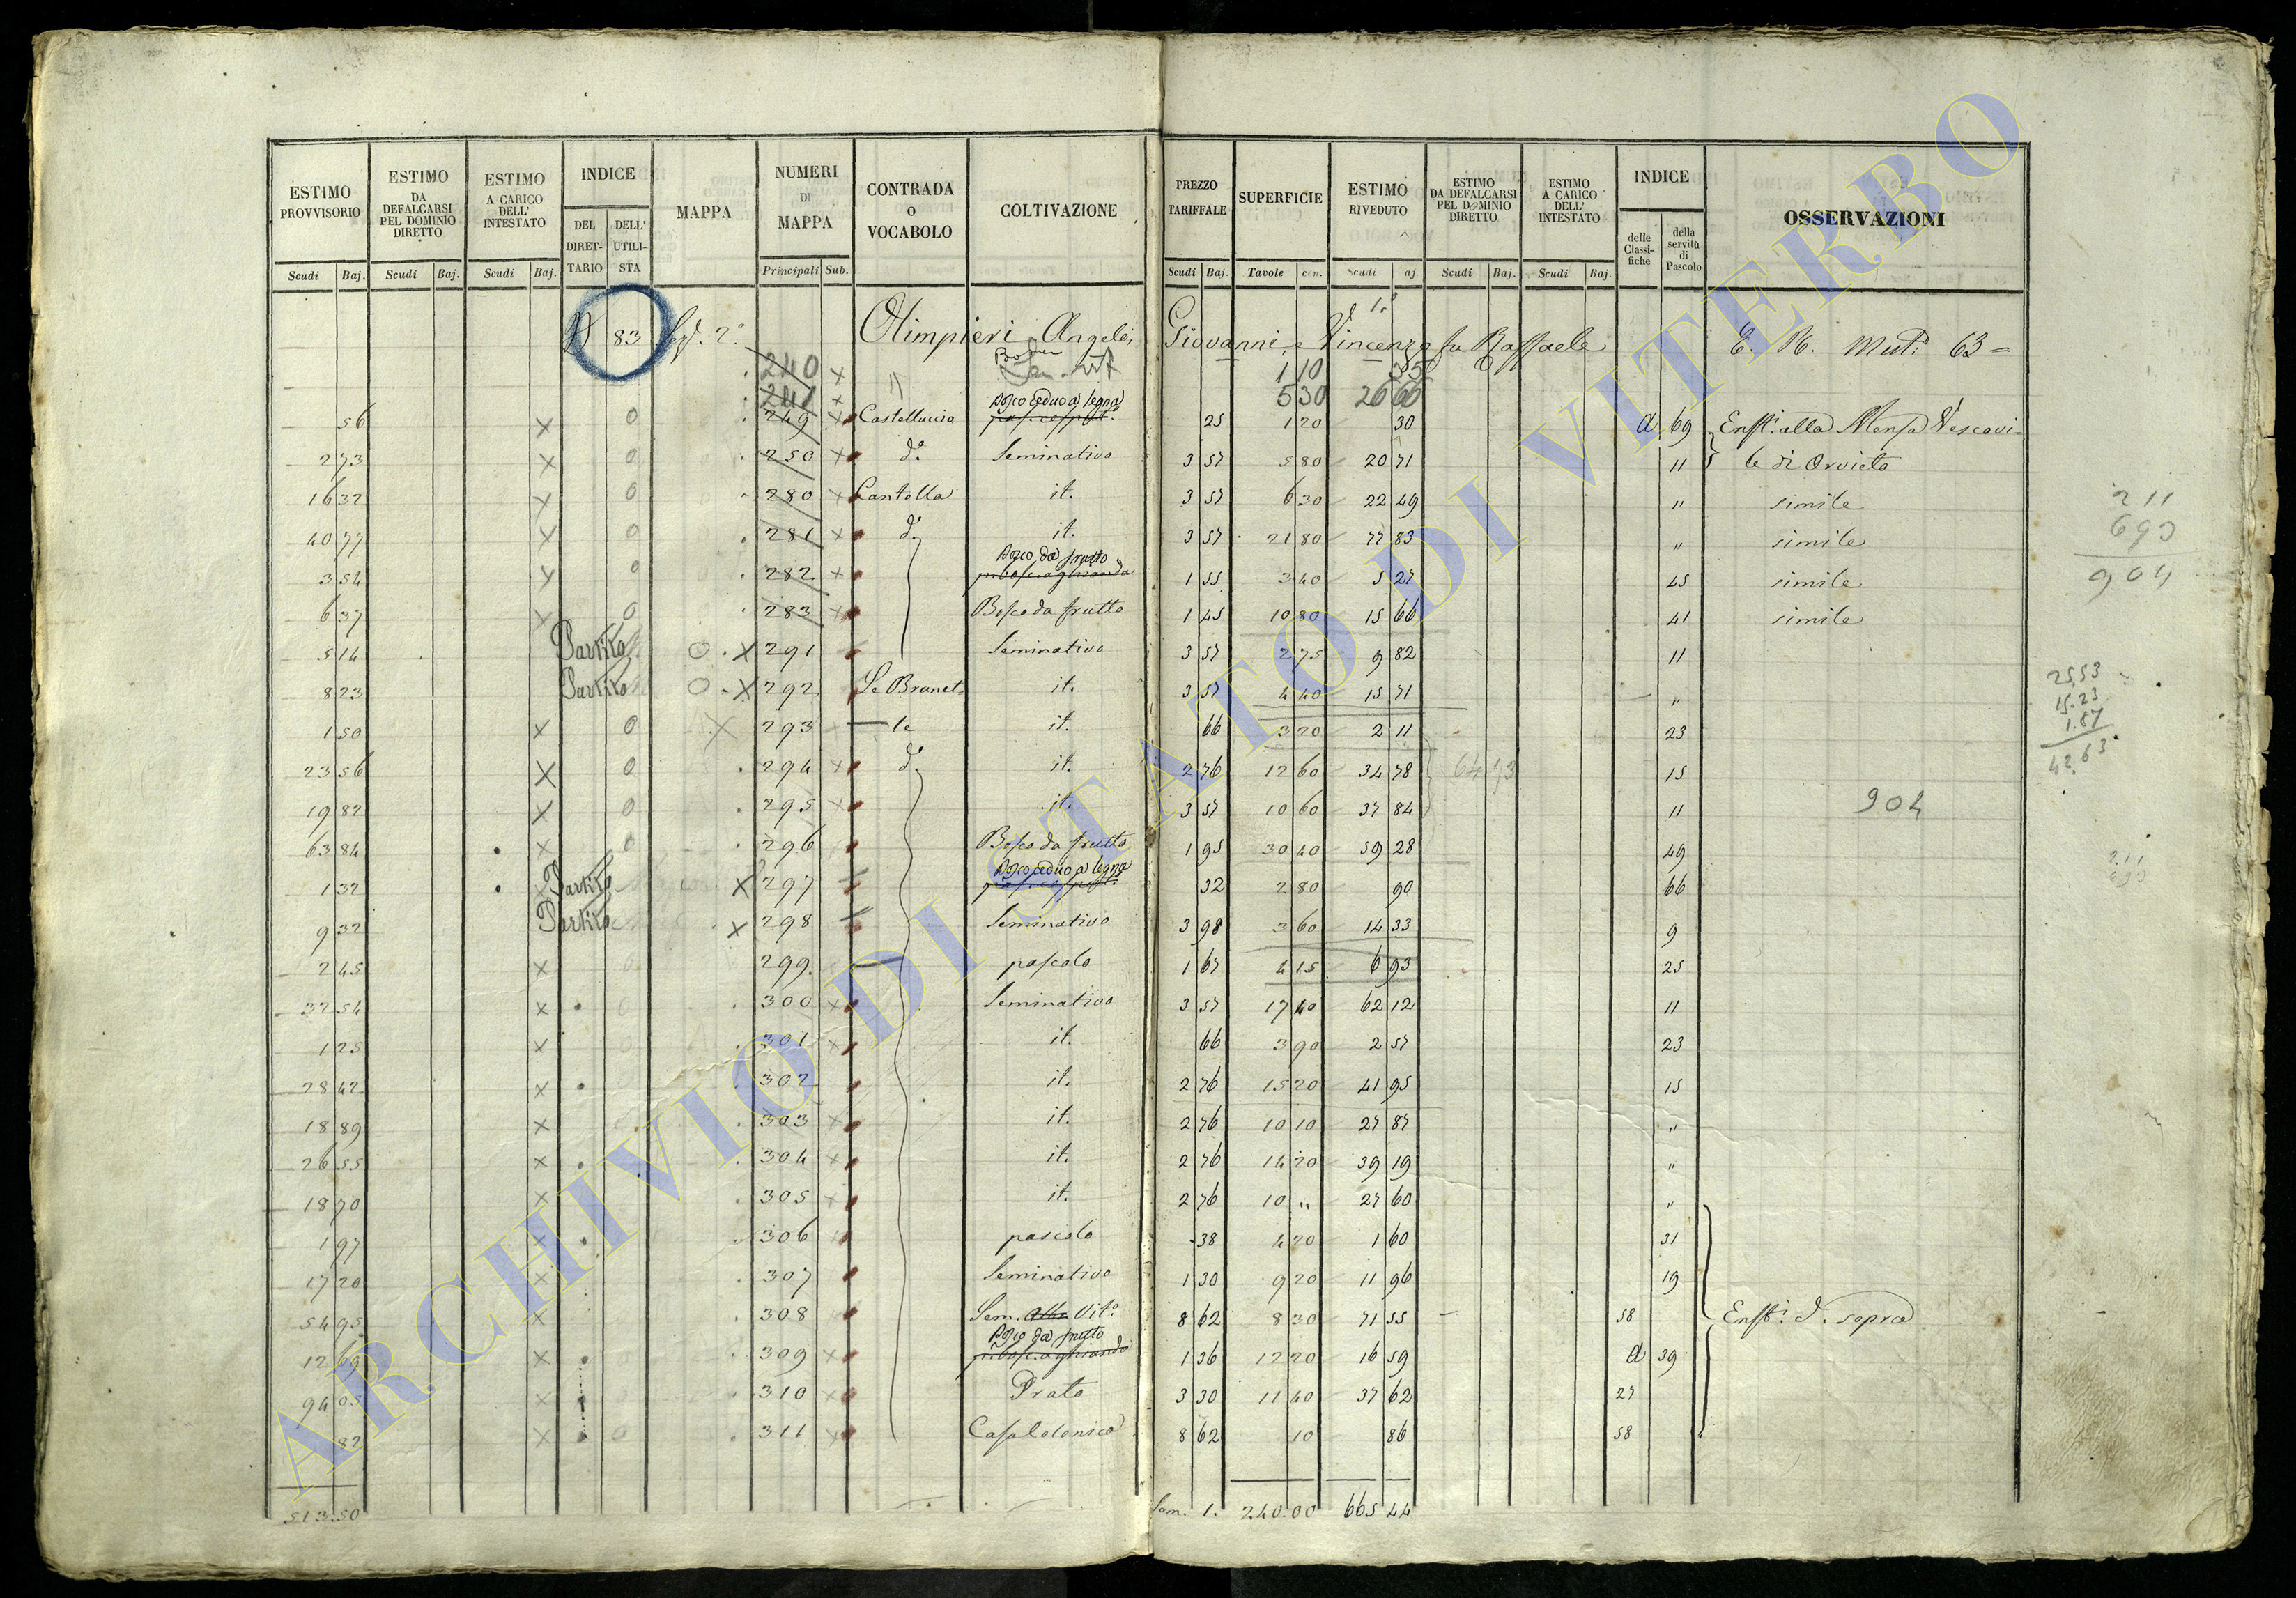 ESTIMO PROVVISORIO | ESTIMO DA DEFALCARSI PEL DOMINIO DIRETTO | ESTIMO A CARICO DELL' INTESTATO | INDICE | MAPPA | NUMERI DI MAPPA | CONTRADA O VOCABOLO | COLTIVAZIONE | PREZZO TARIFFALE | SUPERFICIE | ESTIMO RIVEDUTO | ESTIMO DA DEFALCARSI PEL DOMINIO DIRETTO | ESTIMO A CARICO DELL' INTESTATO | INDICE | OSSERVAZIONI
DEL DIRETTARIO | DELL' UTILISTA | delle Classifiche | della servitù di Pascolo
Scudi | Baj. | Scudi | Baj. | Scudi | Baj. | Principali | Sub. | Scudi | Baj. | Tavole | cen. | Scudi | aj. | Scudi | Baj. | Scudi | Baj.
83 | Olimpieri Angelo, Giovanni, e Vincenzo fu Raffaele | E. R. Mut: 63 =
240 x | " | 1 10 | 35
241 x | 5 30 | 26 66
56 | x | 0 | 249 x | Castelluccio | Bosco ceduo a legna | 25 | 1 20 | 30 | d | 69 | Enfit: alla Mensa Vescovi-
2 73 | x | 0 | 250 x | d.o | Seminativo | 3 57 | 5 80 | 20 71 | 11 | le di Orvieto
16 32 | x | 0 | 280 x | Cantolla | it. | 3 57 | 6 30 | 22 49 | " | simile
40 77 | x | 0 | 281 x | d.o | it. | 3 57 | 21 80 | 77 83 | " | simile
3 54 | x | 0 | 282 x | Bosco da frutto | 1 55 | 3 40 | 5 27 | 45 | simile
6 37 | x | 0 | 283 x | Bosco da frutto | 1 45 | 10 80 | 15 66 | 41 | simile
5 14 | Partito | 0 x | 291 | Seminativo | 3 57 | 2 75 | 9 82 | 11
8 23 | Partito | 0 x | 292 | Le Brunet | it. | 3 57 | 4 40 | 15 71 | "
1 50 | x | 0 | x | 293 | te | it. | 66 | 3 20 | 2 11 | 23
23 56 | x | 0 | 294 x | d.o | it. | 2 76 | 12 60 | 34 78 | 64 73 | 15
19 82 | x | 0 | 295 x | it. | 3 57 | 10 60 | 37 84 | 11 | 904
63 84 | x | 0 | 296 | Bosco da frutto | 1 95 | 30 40 | 59 28 | 49
1 32 | x | Partito | x | 297 | Bosco ceduo a legna | 32 | 2 80 | 90 | 66
9 32 | Partito | x | 298 | Seminativo | 3 98 | 3 60 | 14 33 | 9
2 45 | x | 299 | pascolo | 1 67 | 4 15 | 6 93 | 25
32 54 | x | 300 x | Seminativo | 3 57 | 17 40 | 62 12 | 11
1 25 | x | 301 x | it. | 66 | 3 90 | 2 57 | 23
28 42 | x | 302 | it. | 2 76 | 15 20 | 41 95 | 15
18 89 | x | 303 x | it. | 2 76 | 10 10 | 27 87 | "
26 55 | x | 304 x | it. | 2 76 | 14 20 | 39 19 | "
18 70 | x | 305 x | it. | 2 76 | 10 " | 27 60 | "
1 97 | x | 306 | pascolo | 38 | 4 20 | 1 60 | 31
17 20 | x | 307 | Seminativo | 1 30 | 9 20 | 11 96 | 19
54 95 | x | 308 | Sem. Vit.o | 8 62 | 8 30 | 71 55 | 58 | Enfit: d. sopra
12 69 | x | 309 x | Bosco da frutto | 1 36 | 12 20 | 16 59 | d | 39
94 05 | x | 310 x | Prato | 3 30 | 11 40 | 37 62 | 27
82 | x | 0 | 311 x | Casa Colonica | 8 62 | 10 | 86 | 58
513.50 | Som. 1. | 240.00 | 665 44
211
693
904
25,53
15.23
1.87
42,63
ARCHIVIO DI STATO DI VITERBO